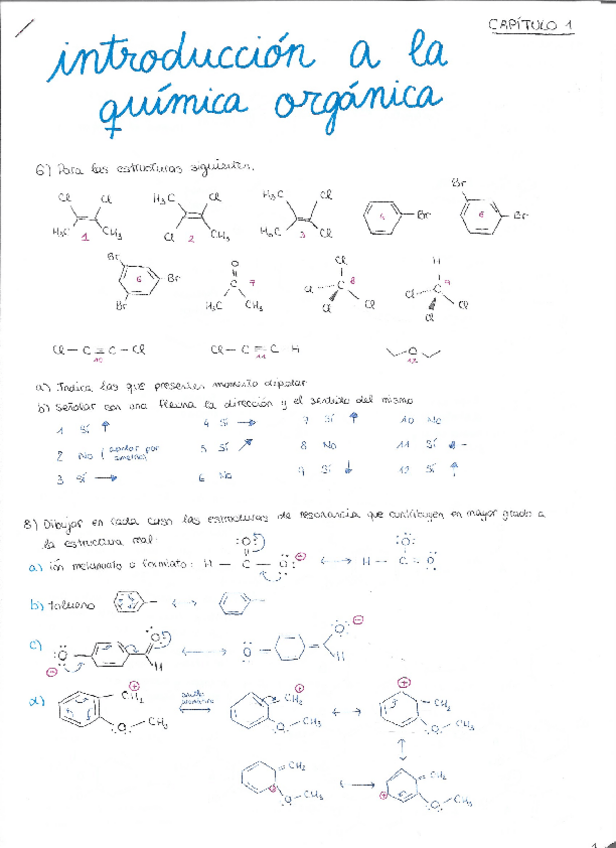 CAPÍTULO 1
introducción a la
química orgánica
6) Para las estructuras siguientes.
Cl Cl H₃C Cl H₃C Cl
Br
H₃C 1 CH₃ Cl 2 CH₃ H₃C 3 Cl 4 Br 5 Br
Br O Cl H
6 Br C 7 Cl C 8 Cl C 9
Br H₃C CH₃ Cl Cl Cl Cl
Cl - C ≡ C - Cl Cl - C ≡ C - H O
10 11 12
a) Indica las que presenten momento dipolar
b) Señalar con una flecha la dirección y el sentido del mismo
1 Sí ↑ 4 Sí → 7 Sí ↑ 10 No
2 No ( por simetría) 5 Sí ↗ 8 No 11 Sí ←
3 Sí → 6 No 9 Sí ↓ 12 Sí ↑
8) Dibujar en cada caso las estructuras de resonancia que contribuyen en mayor grado a
la estructura real:
a) ión metanoato o formiato: H - C - O ⊖ ↔ H - C = O
b) tolueno ↔
c) O ⊖ O H ↔ O O ⊖ H
d) CH₂ ⊕ O - CH₃ ↔ CH₂ ⊕ O - CH₃ ↔ ⊕ CH₂ O - CH₃
↕
= CH₂ ⊕ O - CH₃ ↔ ⊕ = CH₂ O - CH₃